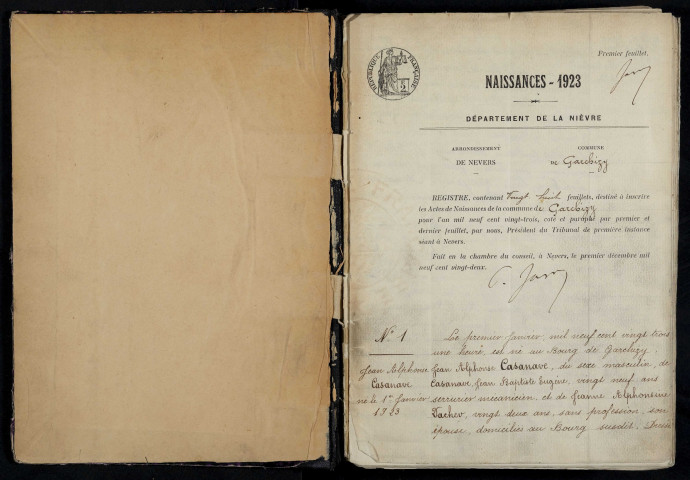 RÉPUBLIQUE FRANÇAISE
Premier feuillet.
NAISSANCES - 1923
DÉPARTEMENT DE LA NIÈVRE
ARRONDISSEMENT
DE NEVERS
COMMUNE
DE Garchizy
REGISTRE, contenant Vingt huit feuillets, destiné à inscrire
les Actes de Naissances de la commune de Garchizy
pour l'an mil neuf cent vingt-trois, coté et paraphé par premier et
dernier feuillet, par nous, Président du Tribunal de première instance
séant à Nevers.
Fait en la chambre du conseil, à Nevers, le premier décembre mil
neuf cent vingt-deux.
N° 1
Jean Alphonse
Casanave
né le 1er Janvier
1923
Le premier Janvier, mil neuf cent vingt trois
une heure, est né au Bourg de Garchizy,
Jean Alphonse Casanave, du sexe masculin, de
Casanave Jean Baptiste Eugène, vingt neuf ans
serrurier mécanicien, et de Jeanne Alphonsine
Vachey, vingt deux ans, sans profession, son
épouse, domiciliés au Bourg susdit.